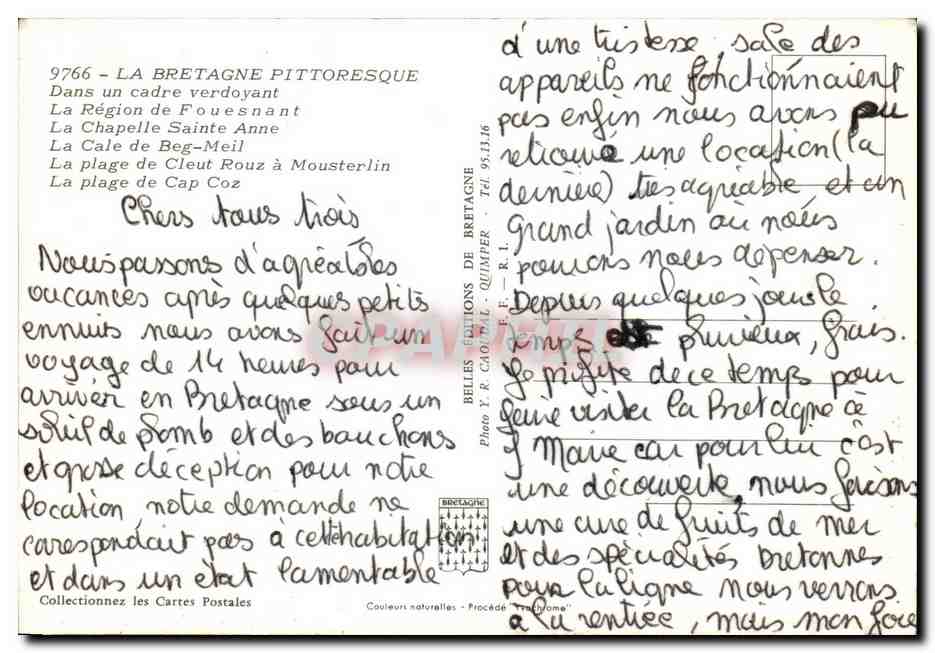 9766 - LA BRETAGNE PITTORESQUE
Dans un cadre verdoyant
La Région de Fouesnant
La Chapelle Sainte Anne
La Cale de Beg-Meil
La plage de Cleut Rouz à Mousterlin
La plage de Cap Coz
Chers tous trois
Nous passons d'agréables
vacances après quelques petits
ennuits nous avons fait un
voyage de 14 heures pour
arriver en Bretagne sous un
soleil de plomb et des bouchons
et grosse déception pour notre
location notre demande ne
carespondait pas à cette habitation
et dans un état lamentable
Collectionnez les Cartes Postales
BELLES ÉDITIONS DE BRETAGNE
Photo Y. R. CAOUDAL - QUIMPER - Tél. 95.13.16
F. F. - R. I.
BRETAGNE
Couleurs naturelles - Procédé "Yvochrome"
CPAPHIL
d'une tristesse, sale des
appareils ne fonctionnaient
pas enfin nous avons pu
retrouvé une location (la
dernière) très agréable et un
grand jardin où nous
pouvons nous dépenser.
Depuis quelques jours le
temps est pluvieux, frais.
Je profite de ce temps pour
faire visiter la Bretagne à
J Marie car pour lui c'est
une découverte, nous faisons
une cure de fruits de mer
et des spécialités bretonnes
pour la ligne nous verrons
à la rentrée, mais mon foie